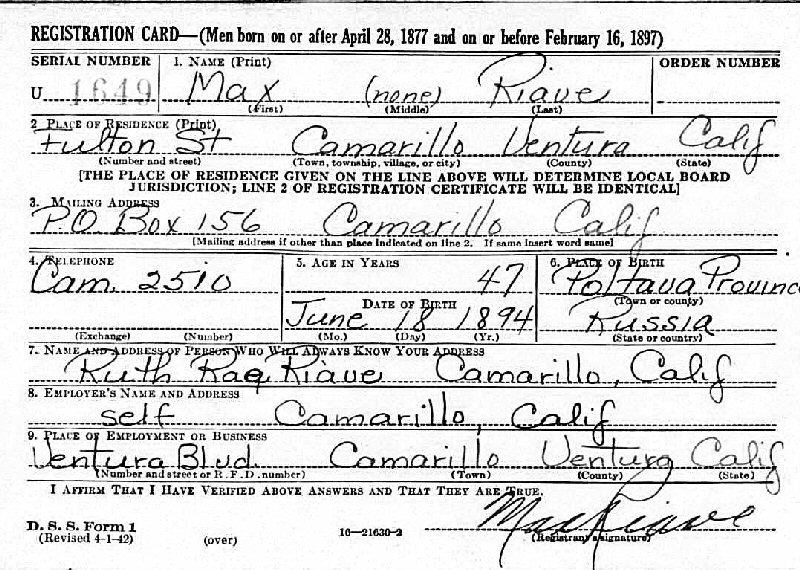 REGISTRATION CARD—(Men born on or after April 28, 1877 and on or before February 16, 1897)
SERIAL NUMBER 1. NAME (Print) ORDER NUMBER
U 1649 Max (none) Riave
(First) (Middle) (Last)
2 PLACE OF RESIDENCE (Print)
Fulton St Camarillo Ventura Calif
(Number and street) (Town, township, village, or city) (County) (State)
[THE PLACE OF RESIDENCE GIVEN ON THE LINE ABOVE WILL DETERMINE LOCAL BOARD
JURISDICTION; LINE 2 OF REGISTRATION CERTIFICATE WILL BE IDENTICAL]
3. MAILING ADDRESS
P.O Box 156 Camarillo Calif
[Mailing address if other than place indicated on line 2. If same insert word same]
4. TELEPHONE 5. AGE IN YEARS 6. PLACE OF BIRTH
Cam. 2510 47 Poltava Provinc
DATE OF BIRTH (Town or county)
June 18 1894 Russia
(Exchange) (Number) (Mo.) (Day) (Yr.) (State or country)
7. NAME AND ADDRESS OF PERSON WHO WILL ALWAYS KNOW YOUR ADDRESS
Ruth Rae Riave Camarillo, Calif
8. EMPLOYER'S NAME AND ADDRESS
self Camarillo, Calif
9. PLACE OF EMPLOYMENT OR BUSINESS
Ventura Blvd. Camarillo Ventura Calif
(Number and street or R. F. D. number) (Town) (County) (State)
I AFFIRM THAT I HAVE VERIFIED ABOVE ANSWERS AND THAT THEY ARE TRUE.
Max Riave
D. S. S. Form 1
(Revised 4-1-42) (over) 16—21630-2 (Registrant's signature)